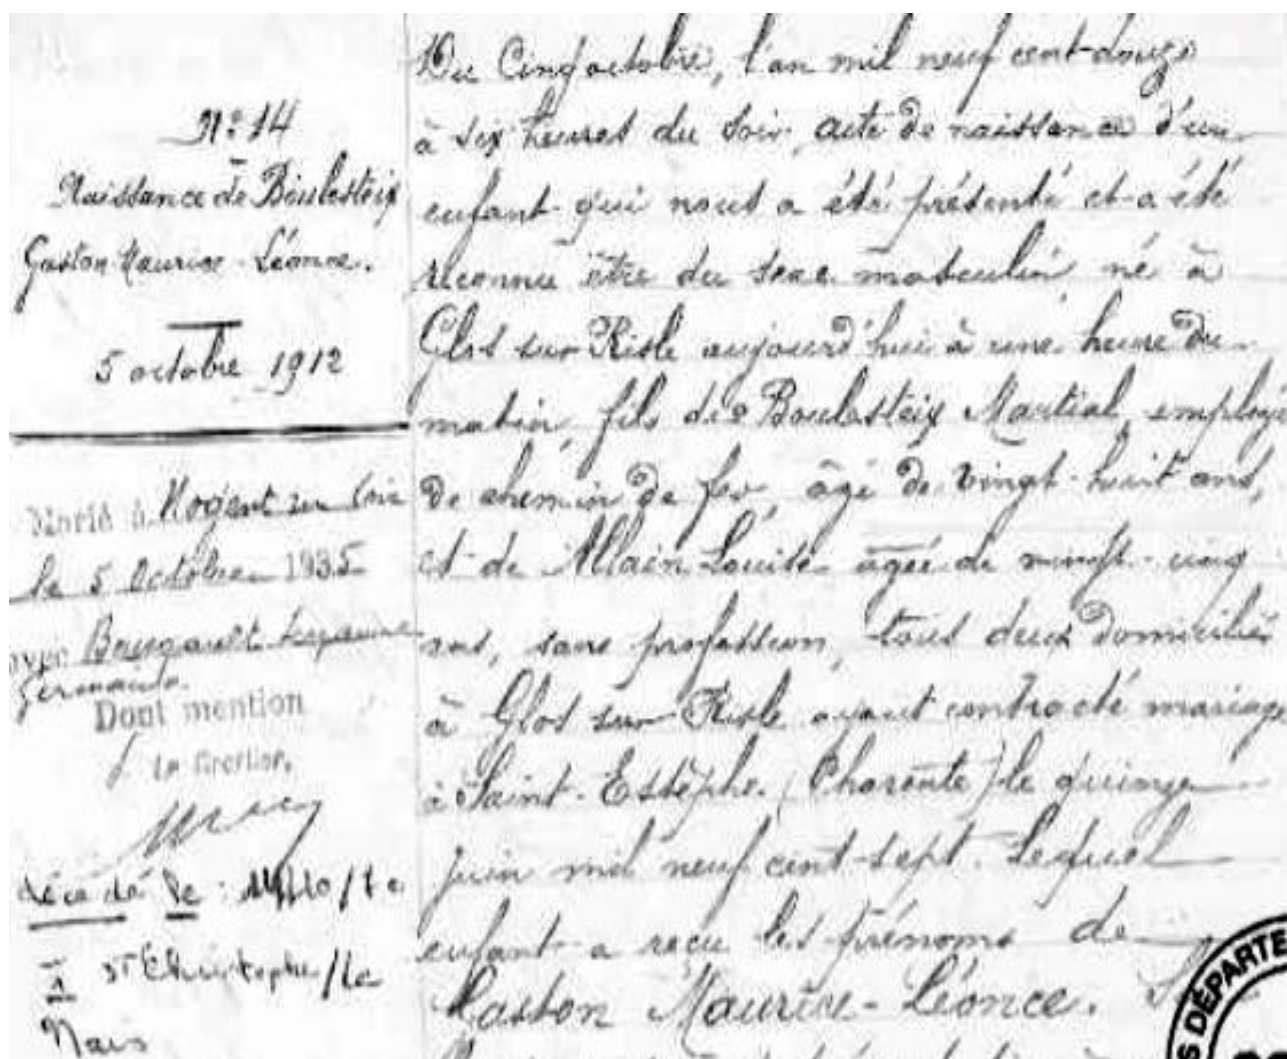 N° 14
Naissance de Boulesteix
Gaston Maurice-Léonce.
5 octobre 1912
Marié à Nogent sur
le 5 Octobre 1935
avec
Germaine
Dont mention
Le Greffier,
décédé le :
à St Christophe/Le
Nais
Du Cinq octobre, l'an mil neuf cent-douze
à six heures du soir, acte de naissance d'un
enfant qui nous a été présenté et a été
reconnu être du sexe masculin né à
Glos sur Risle aujourd'hui à une heure du
matin, fils de Boulesteix Martial, employé
de chemin de fer, âgé de vingt-huit ans,
et de Allain Louise âgée de vingt-cinq
ans, sans profession, tous deux domiciliés
à Glos sur Risle ayant contracté mariage
à Saint-Estèphe (Charente) le quinze
juin mil neuf cent-sept. Lequel
enfant a reçu les prénoms de
Gaston Maurice-Léonce.
S DÉPARTE